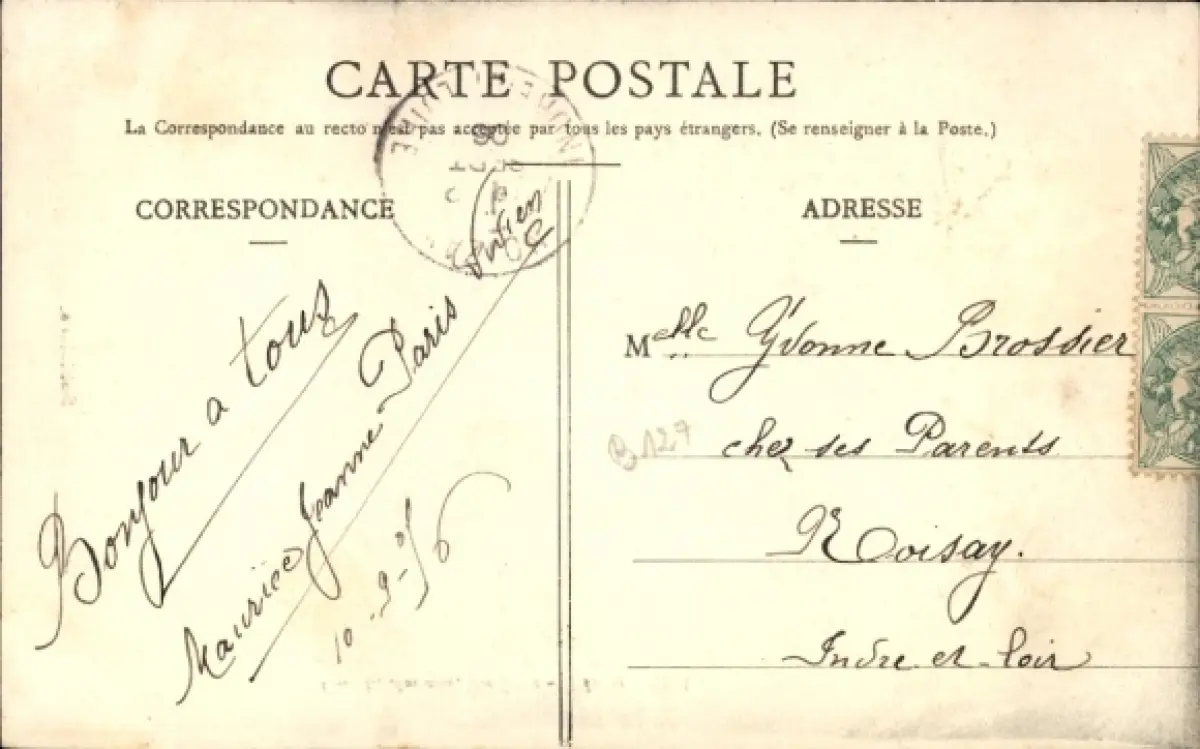 CARTE POSTALE
La Correspondance au recto n'est pas acceptée par tous les pays étrangers. (Se renseigner à la Poste.)
CORRESPONDANCE
Bonjour a tous
Maurice Jeanne Paris
ADRESSE
Melle Yvonne Brossier
chez ses Parents
Noisay.
Indre-et-loir
B127